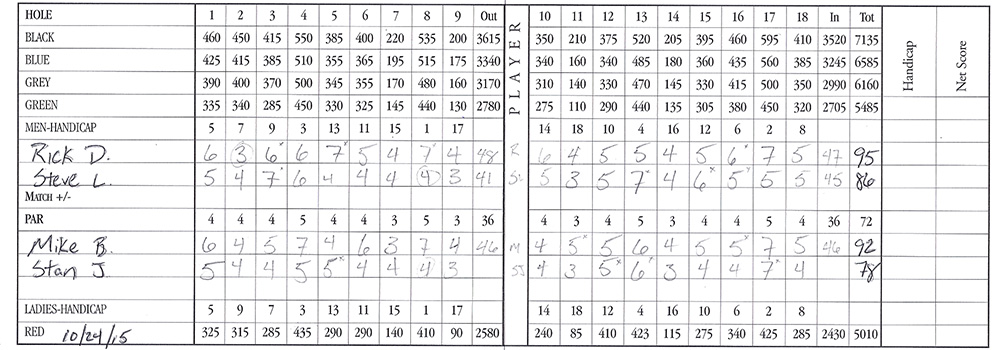 HOLE 1 2 3 4 5 6 7 8 9 Out PLAYER 10 11 12 13 14 15 16 17 18 In Tot Handicap Net Score
BLACK 460 450 415 550 385 400 220 535 200 3615 350 210 375 520 205 395 460 595 410 3520 7135
BLUE 425 415 385 510 355 365 195 515 175 3340 340 160 340 485 180 360 435 560 385 3245 6585
GREY 390 400 370 500 345 355 170 480 160 3170 310 140 330 470 145 330 415 500 350 2990 6160
GREEN 335 340 285 450 330 325 145 440 130 2780 275 110 290 440 135 305 380 450 320 2705 5485
MEN-HANDICAP 5 7 9 3 13 11 15 1 17 14 18 10 4 16 12 6 2 8
Rick D. 6 3 6* 6 7* 5 4 7* 4 48 R 6 4 5 5 4 5 6* 7 5 47 95
Steve L. 5 4 7* 6 4 4 4 4 3 41 SL 5 3 5 7* 4 6* 5* 5 5 45 86
MATCH +/-
PAR 4 4 4 5 4 4 3 5 3 36 4 3 4 5 3 4 4 5 4 36 72
Mike B. 6 4 5 7 4* 6 3 7 4 46 M 4 5* 5 6 4 5 5* 7 5 46 92
Stan J 5 4 4 5 5* 4 4 4 3 SJ 4 3 5* 6* 3 4 4 7* 4 78
LADIES-HANDICAP 5 9 7 3 13 11 15 1 17 14 18 12 4 16 10 6 2 8
RED 10/24/15 325 315 285 435 290 290 140 410 90 2580 240 85 410 423 115 275 340 425 285 2430 5010